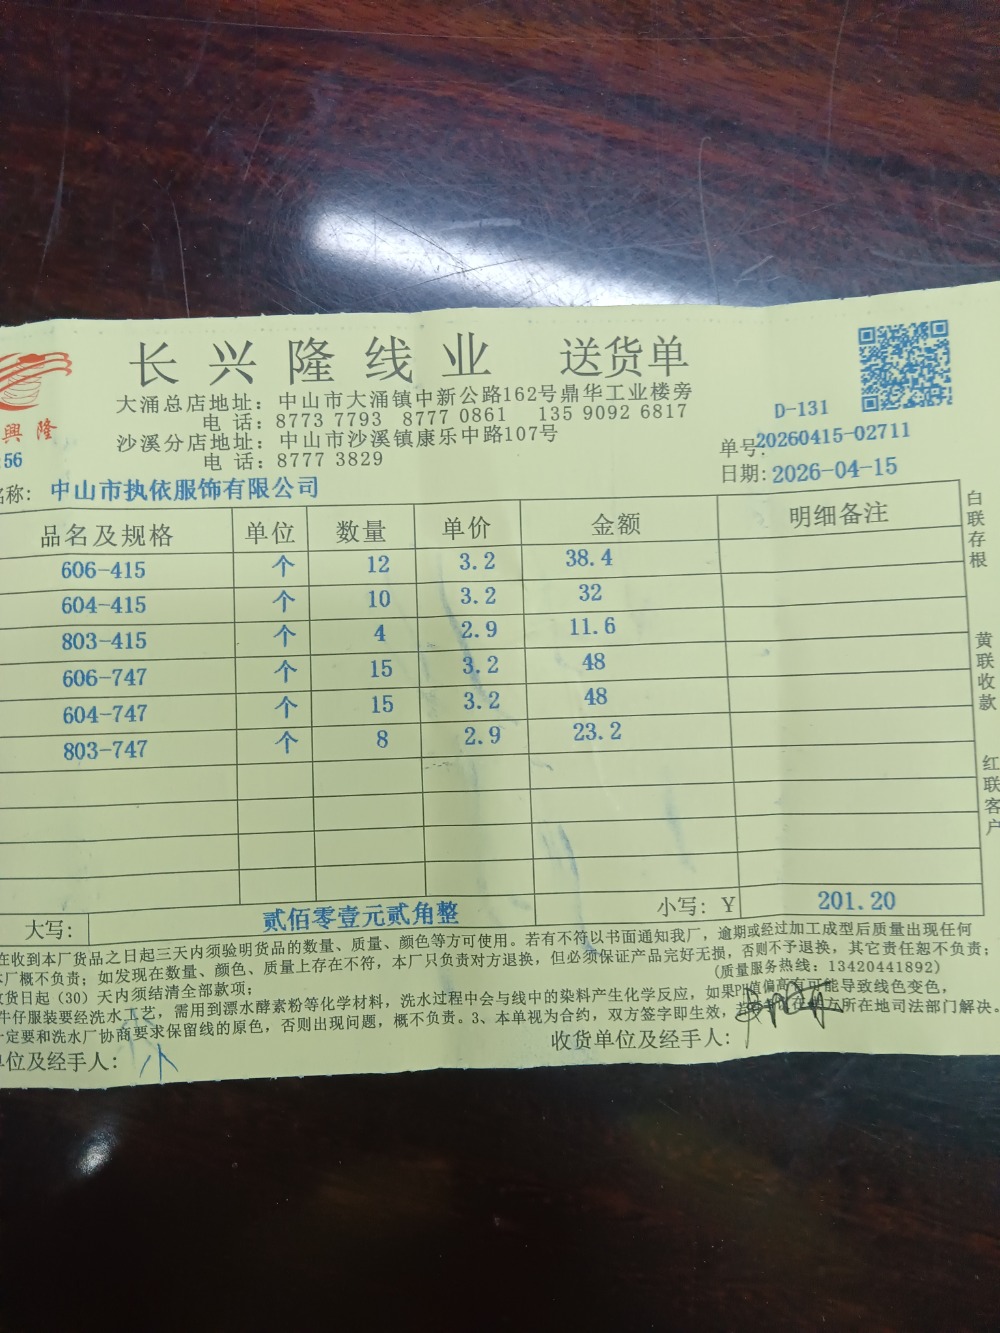 长兴隆线业 送货单
興隆
大涌总店地址：中山市大涌镇中新公路162号鼎华工业楼旁
电 话：8773 7793 8777 0861 135 9092 6817
沙溪分店地址：中山市沙溪镇康乐中路107号
电 话：8777 3829
D-131
单号:20260415-02711
日期:2026-04-15
156
名称: 中山市执依服饰有限公司
品名及规格 单位 数量 单价 金额 明细备注
606-415 个 12 3.2 38.4
604-415 个 10 3.2 32
803-415 个 4 2.9 11.6
606-747 个 15 3.2 48
604-747 个 15 3.2 48
803-747 个 8 2.9 23.2
白联存根
黄联收款
红联客户
大写: 贰佰零壹元贰角整 小写: ¥ 201.20
在收到本厂货品之日起三天内须验明货品的数量、质量、颜色等方可使用。若有不符以书面通知我厂，逾期或经过加工成型后质量出现任何
本厂概不负责；如发现在数量、颜色、质量上存在不符，本厂只负责对方退换，但必须保证产品完好无损，否则不予退换，其它责任恕不负责；
货日起（30）天内须结清全部款项； (质量服务热线：13420441892)
牛仔服装要经洗水工艺，需用到漂水酵素粉等化学材料，洗水过程中会与线中的染料产生化学反应，如果PH值偏高有可能导致线色变色，
一定要和洗水厂协商要求保留线的原色，否则出现问题，概不负责。3、本单视为合约，双方签字即生效，方所在地司法部门解决。
单位及经手人: 小 收货单位及经手人: